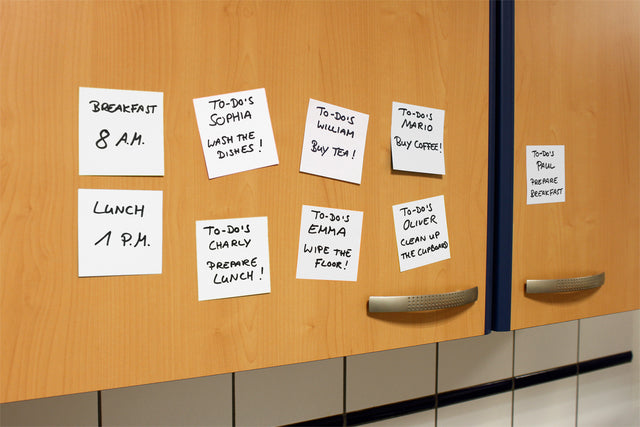 BREAKFAST
8 A.M.
TO-DO'S
SOPHIA
WASH THE
DISHES!
TO-DO'S
WILLIAM
BUY TEA!
TO-DO'S
MARIO
BUY COFFEE!
TO-DO'S
PAUL
PREPARE
BREAKFAST
LUNCH
1 P.M.
TO-DO'S
CHARLY
PREPARE
LUNCH!
TO-DO'S
EMMA
WIPE THE
FLOOR!
TO-DO'S
OLIVER
CLEAN UP
THE CUPBOARD